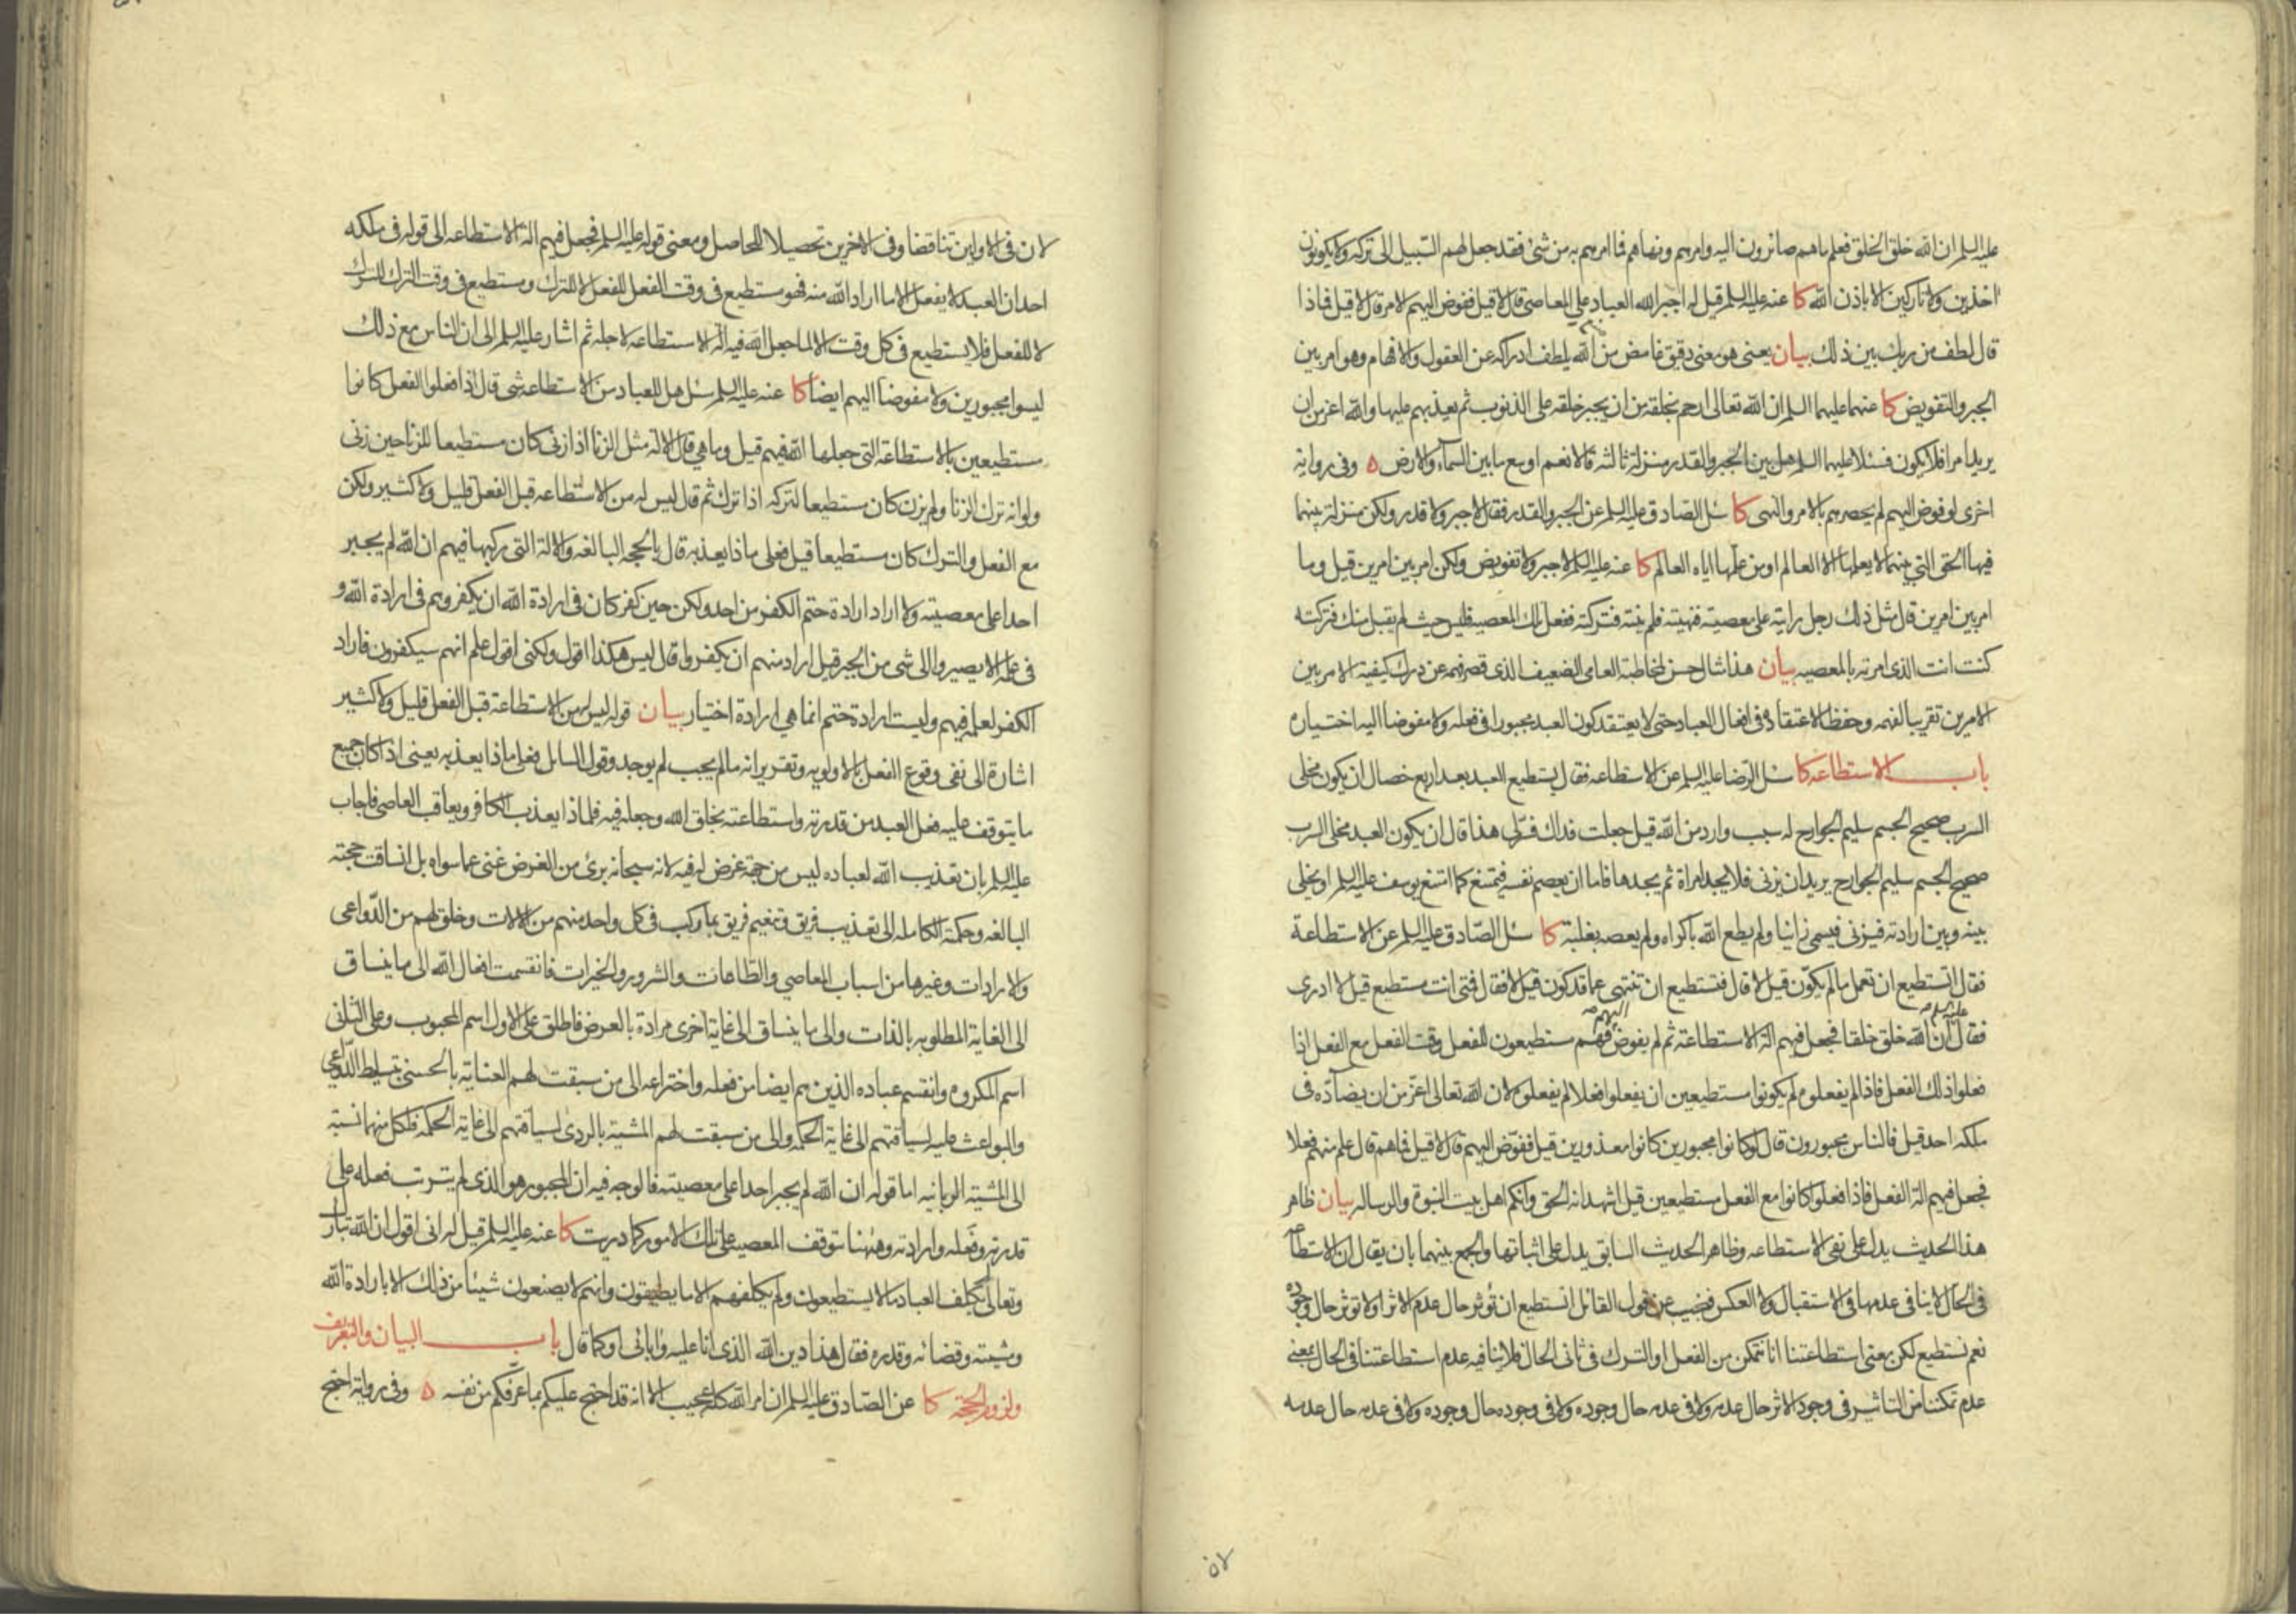 عليه السلم ان الله خلق الخلق فعلم ما هم صائرون اليه وامرهم ونهاهم فما امرهم به من شئ فقد جعل لهم السّبيل الى تركه ولا يكونون
اخذين ولا تاركين الا باذن الله كا عنه عليه السلم قيل له اجبر الله العباد على المعاصى قال لا قيل ففوض اليهم الامر قال لا قيل فماذا
قال لطف من ربك بين ذلك بيان يعنى هو معنى دقيق غامض من الله يلطف ادراكه عن العقول والافهام وهو امر بين
الجبر والتفويض كا عنهما عليهما السلم ان الله تعالى ارحم بخلقه من ان يجبر خلقه على الذنوب ثم يعذبهم عليها والله اعز من ان
يريد امرا فلا يكون فسئلا عليهما السلم هل بين الجبر والقدر منزلة ثالثه قالا نعم اوسع ما بين السمآء والارض ه وفى رواية
اخرى لو فوض اليهم لم يحصرهم بالامر والنهى كا سئل الصادق عليه السلم عن الجبر والقدر فقال لا جبر ولا قدر ولكن منزلة بينهما
فيها الحق التي بينهما لا يعلمها الا العالم او من علّمها اياه العالم كا عنه عليه السلم لا جبر ولا تفويض ولكن امر بين امرين قيل وما
امر بين امرين قال مثل ذلك رجل رايته على معصية فنهيته فلم ينته فتركته ففعل تلك المعصيه فليس حيث لم يقبل منك فتركته
كنت انت الذى امرته بالمعصيه بيان هذا مثال حسن لمخاطبة العامى الضعيف الذى قصر فهمه عن درك كيفية الامر بين
الامرين تقريبا لفهمه وحفظا لاعتقاده فى افعال العباد حتى لا يعتقد كون العبد مجبورا فى فعله ولا مفوضا اليه اختياره
باب الاستطاعه كا سئل الرّضا عليه السلم عن الاستطاعه فقال يستطيع العبد بعد اربع خصال ان يكون مخلى
السرب صحيح الجسم سليم الجوارح له سبب وارد من الله قيل جعلت فداك فسّر لى هذا قال ان يكون العبد مخلى السرب
صحيح الجسم سليم الجوارح يريد ان يزنى فلا يجد امراة ثم يجدها فاما ان يعصم نفسه فيمتنع كما امتنع يوسف عليه السلم او يخلى
بينه وبين ارادته فيزنى فيسمى زانيا ولم يطع الله باكراه ولم يعصه بغلبة كا سئل الصّادق عليه السلم عن الاستطاعة
فقال اتستطيع ان تعمل ما لم يكوّن قيل لا قال فتستطيع ان تنتهى عما قد كون قيل لا فقال فمتى انت مستطيع قيل لا ادرى
فقال عليه السلم ان الله خلق خلقا فجعل فيهم الة الاستطاعة ثم لم يفوض اليهم فهم مستطيعون للفعل وقت الفعل مع الفعل اذا
فعلوا ذلك الفعل فاذا لم يفعلوه لم يكونوا مستطيعين ان يفعلوا فعلا لم يفعلوه لان الله تعالى اعزّ من ان يضآدّه فى
ملكه احد قيل فالناس مجبورون قال لو كانوا مجبورين كانوا معذورين قيل ففوّض اليهم قال لا قيل فما هم قال علم منهم فعلا
فجعل فيهم الة الفعل فاذا فعلوا كانوا مع الفعل مستطيعين قيل اشهد انه الحق وانكم اهل بيت النبوة والرساله بيان ظاهر
هذا الحديث يدل على نفى الاستطاعه وظاهر الحديث السابق يدل على اثباتها والجمع بينهما بان يقال ان الاستطاعه
فى الحال لا ينافى عدمها فى الاستقبال ولا العكس فنجيب عن قول القائل اتستطيع ان تؤثر حال عدم الاثر او لا تؤثر حال وجوده
نعم نستطيع لكن بمعنى استطاعتنا انا نتمكن من الفعل او الترك فى ثانى الحال فلا ينافيه عدم استطاعتنا فى الحال بمعنى
عدم تمكننا من التاثير فى وجود الاثر حال عدمه ولا فى عدمه حال وجوده ولا فى وجوده حال وجوده ولا فى عدمه حال عدمه
لان
لان فى الاولين تناقضا وفى الاخرين تحصيلا للحاصل ومعنى قوله عليه السلم فجعل فيهم الة الاستطاعه الى قوله فى ملكه
احد ان العبد لا يفعل الا ما اراد الله منه فهو مستطيع فى وقت الفعل للفعل لا للترك ومستطيع فى وقت الترك للترك
لا للفعل فلا يستطيع فى كل وقت الا لما جعل الله فيه آلة الاستطاعه لاجله ثم اشار عليه السلم الى ان الناس مع ذلك
ليسوا مجبورين ولا مفوضا اليهم ايضا كا عنه عليه السلم سئل هل للعباد من الاستطاعه شى قال اذا فعلوا الفعل كانوا
مستطيعين بالاستطاعة التى جعلها الله فيهم قيل وما هي قال الالة مثل الزنا اذا زنى كان مستطيعا للزنا حين زنى
ولو انه ترك الزنا ولم يزن كان مستطيعا لتركه اذا ترك ثم قال ليس له من الاستطاعه قبل الفعل قليل ولا كثير ولكن
مع الفعل والترك كان مستطيعا قيل فعلى ماذا يعذبه قال بالحجه البالغه والالة التى ركبها فيهم ان الله لم يجبر
احدا على معصيته ولا اراد ارادة حتم الكفر من احد ولكن حين كفر كان فى ارادة الله ان يكفر وهم فى ارادة الله و
فى علمه الا يصيروا الى شى من الخير قيل اراد منهم ان يكفروا قال ليس هكذا اقول ولكنى اقول علم انهم سيكفرون فاراد
الكفر لعلمه فيهم وليست ارادة حتم انما هى ارادة اختيار بيان قوله ليس له من الاستطاعة قبل الفعل قليل ولا كثير
اشارة الى نفى وقوع الفعل بالاولويه وتقرير انه ما لم يجب لم يوجد وقول السايل فعلى ماذا يعذبه يعنى اذا كان جميع
ما يتوقف عليه فعل العبد من قدرته واستطاعته بخلق الله وجعله فيه فلماذا يعذب الكافر ويعاقب العاصى فاجاب
عليه السلم بان تعذيب الله لعباده ليس من جهة غرض له فيه لانه سبحانه برئ من الغرض غنى عما سواه بل انساقت حجته
البالغه وحكمته الكامله الى تعذيب فريق وتنعيم فريق بما ركب فى كل واحد منهم من الالات وخلق لهم من الدّواعى
والارادات وغيرها من اسباب المعاصى والطاعات والشرور والخيرات فانقسمت افعال الله الى ما ينساق
الى الغاية المطلوبه بالذات والى ما ينساق الى غاية اخرى مرادة بالعرض فاطلق على الاول اسم المحبوب وعلى الثانى
اسم المكروه وانقسم عباده الذين هم ايضا من فعله واختراعه الى من سبقت لهم العناية بالحسنى بتسليط الدّواعى
والبواعث عليه لسياقتهم الى غاية الحكمه والى من سبقت لهم المشية بالردى لسياقتهم الى غاية الحكمة فلكل منهما نسبة
الى المشية الربانيه اما قوله ان الله لم يجبر احدا على معصيته فالوجه فيه ان المجبور هو الذى لم يترتب فعله على
قدرته وفعله وارادته وههنا تتوقف المعصيه على تلك الامور كما دريت كا عنه عليه السلم قيل له انى اقول ان الله تبارك
وتعالى لم يكلف العباد ما لا يستطيعون ولم يكلفهم الا ما يطيقون وانهم لا يصنعون شيئا من ذلك الا بارادة الله
ومشيته وقضائه وقدره فقال هذا دين الله الذى انا عليه وابائى او كما قال باب البيان والتعريف
ولزوم الحجة كا عن الصّادق عليه السلم ان امر الله كله عجيب الا انه قد احتج عليكم بما عرّفكم من نفسه ه وفى رواية احتج